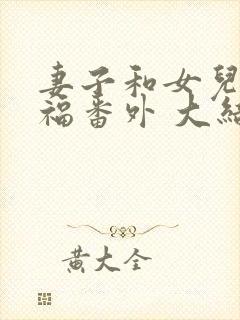 妻子和女兒
福番外 大結
黃大全